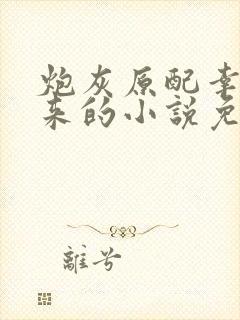 炮灰原配幸
来的小說免
離兮